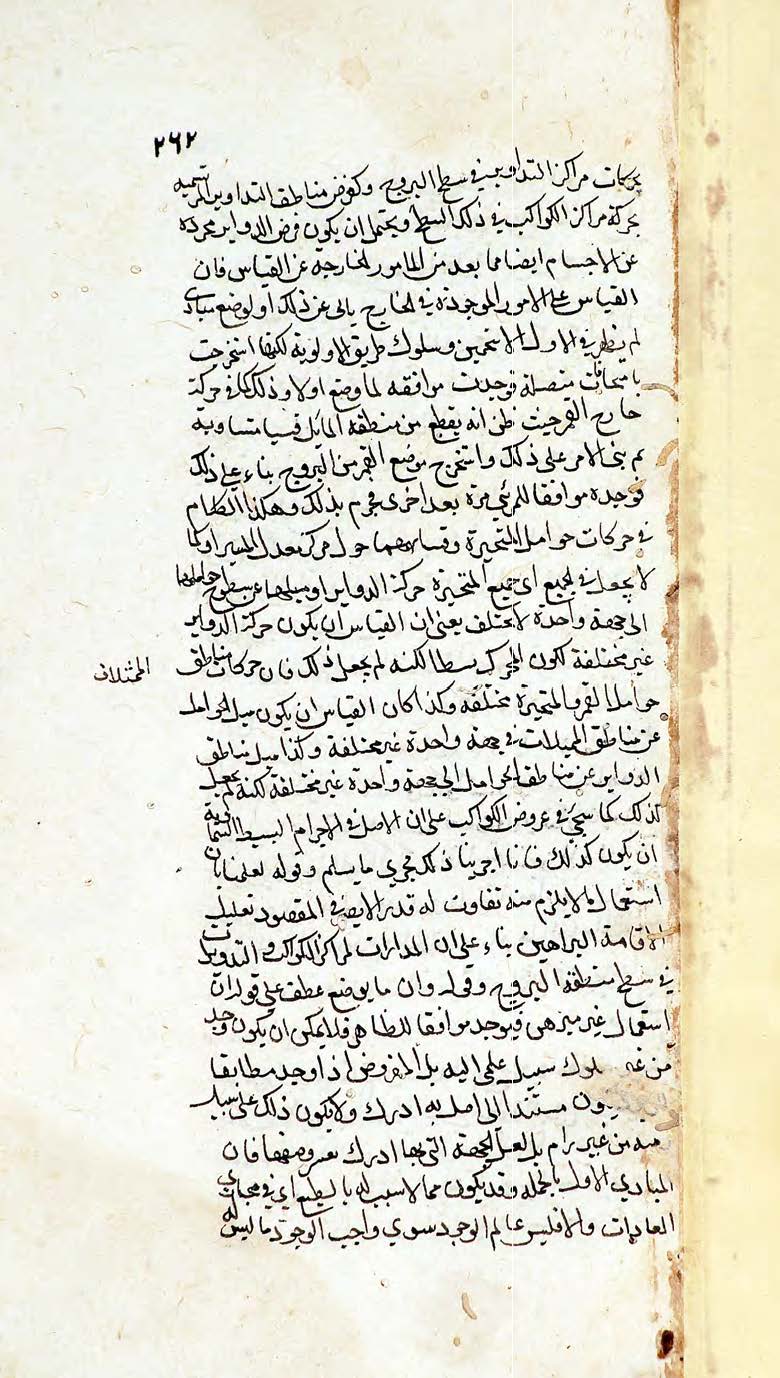 ٢٦٢
بحركات مراكز التداوير في سطح البروج وكفرض مناطق التداوير المرتسمة
بحركة مراكز الكواكب في ذلك السطح ويحتمل ان يكون فرض الدواير مجردة
عن الاجسام ايضا مما يعد من الامور الخارجة عن القياس فان
القياس على الامور الموجودة في الخارج يابى عن ذلك او لوضع مبادى
لم يظهر في الاول الا بتخمين وسلوك طريق الاولوية لكنها استخرجت
بامتحانات متصلة فوجدت موافقة لما وضع اولا وذلك كما في حركة
خارج القمر حيث ظن انه يقطع من منطقة المايل قسيا متساوية
ثم بنى الامر على ذلك واستخرج موضع القمر من البروج بناء على ذلك
فوجده موافقا للمرئي مرة بعد اخرى فجزم بذلك وهكذا الكلام
في حركات حوامل المتحيرة حول مركز معدل المسير او كما
لا يجعل في الجميع اي جميع المتحيرة حركة الدواير او ميلها عن سطوح حواملها
الى جهة واحدة لا يختلف يعنى ان القياس ان يكون حركة الدواير
غير مختلفة لكون المحرك بسيطا لكنه لم يجعل ذلك فان حركات مناطق
الممثلات
حوامل القمر والمتحيرة مختلفة وكذا كان القياس ان يكون ميل الحوامل
عن مناطق الممثلات في جهة واحدة غير مختلفة وكذا ميل مناطق
الدواير عن مناطق الحوامل الى جهة واحدة غير مختلفة لكنه لم يجعل
كذلك كما سيجئ في عروض الكواكب على ان الاصل في الاجرام البسيطة السماوية
ان يكون كذلك فانا اجرينا ذلك مجرى ما يسلم وقوله لعلمنا بان
استعمال ما لا يلزم منه تفاوت له قدر لا يضر في المقصود تعليل
لاقامة البراهين بناء على ان المدارات لمراكز الكواكب والتدويرات
في سطح منطقة البروج وقوله وان ما يوضع عطف على قوله ان
استعمال غير مبرهن فيوجد موافقا للظاهر فلا يمكن ان يكون وجد
من غير سلوك سبيل علمي اليه بل المفروض اذا وجد مطابقا
يكون مستندا الى اصل به ادرك ولا يكون ذلك على سبيل
منه من غير رام بل لعل الجهة التي بها ادرك يعسر وصفها فان
المبادي الاول بالجملة وقد يكون مما لا سبب له بالطبع اي في مجاري
العادات والا فليس في عالم الوجود سوى واجب الوجود ما ليس له